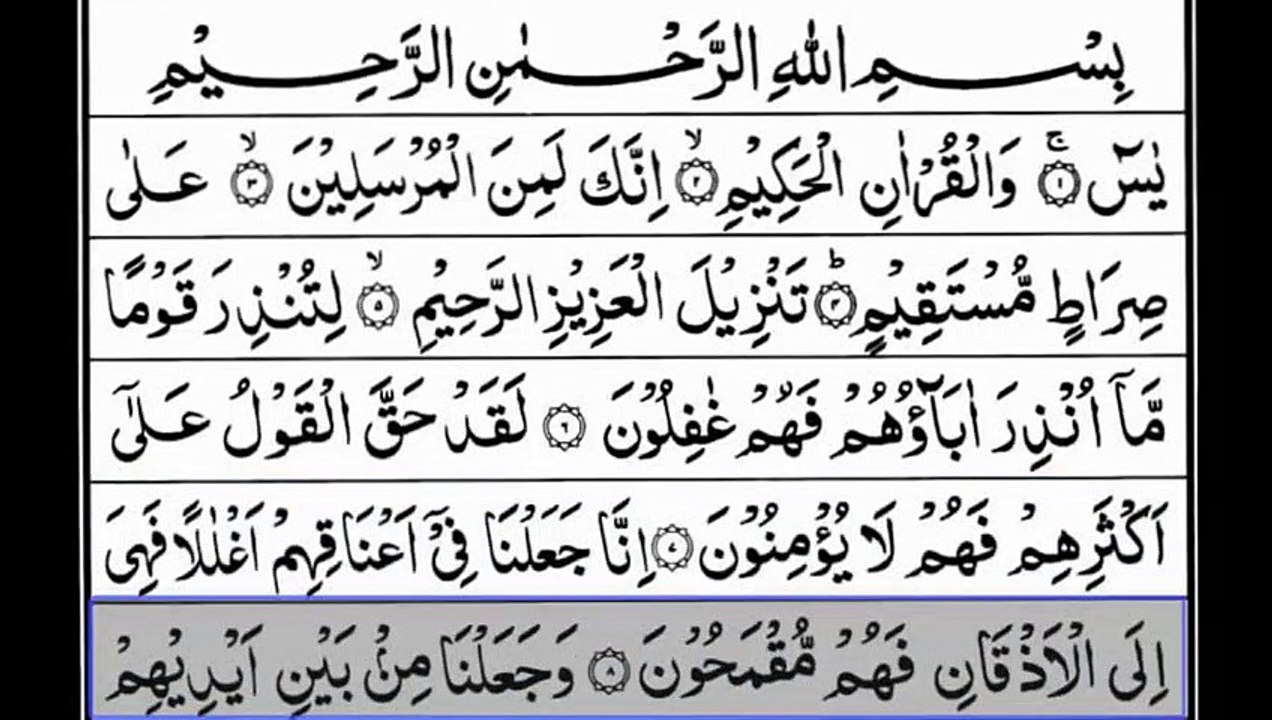 بِسْمِ اللهِ الرَّحْمٰنِ الرَّحِيْمِ
يٰسٓ ۚ﴿۱﴾ وَالْقُرْاٰنِ الْحَكِيْمِ ۙ﴿۲﴾ اِنَّكَ لَمِنَ الْمُرْسَلِيْنَ ۙ﴿۳﴾ عَلٰى
صِرَاطٍ مُّسْتَقِيْمٍ ؕ﴿۴﴾ تَنْزِيْلَ الْعَزِيْزِ الرَّحِيْمِ ۙ﴿۵﴾ لِتُنْذِرَ قَوْمًا
مَّاۤ اُنْذِرَ اٰبَآؤُهُمْ فَهُمْ غٰفِلُوْنَ ﴿۶﴾ لَقَدْ حَقَّ الْقَوْلُ عَلٰٓى
اَكْثَرِهِمْ فَهُمْ لَا يُؤْمِنُوْنَ ﴿۷﴾ اِنَّا جَعَلْنَا فِىْۤ اَعْنَاقِهِمْ اَغْلٰلًا فَهِىَ
اِلَى الْاَذْقَانِ فَهُمْ مُّقْمَحُوْنَ ﴿۸﴾ وَجَعَلْنَا مِنْۢ بَيْنِ اَيْدِيْهِمْ